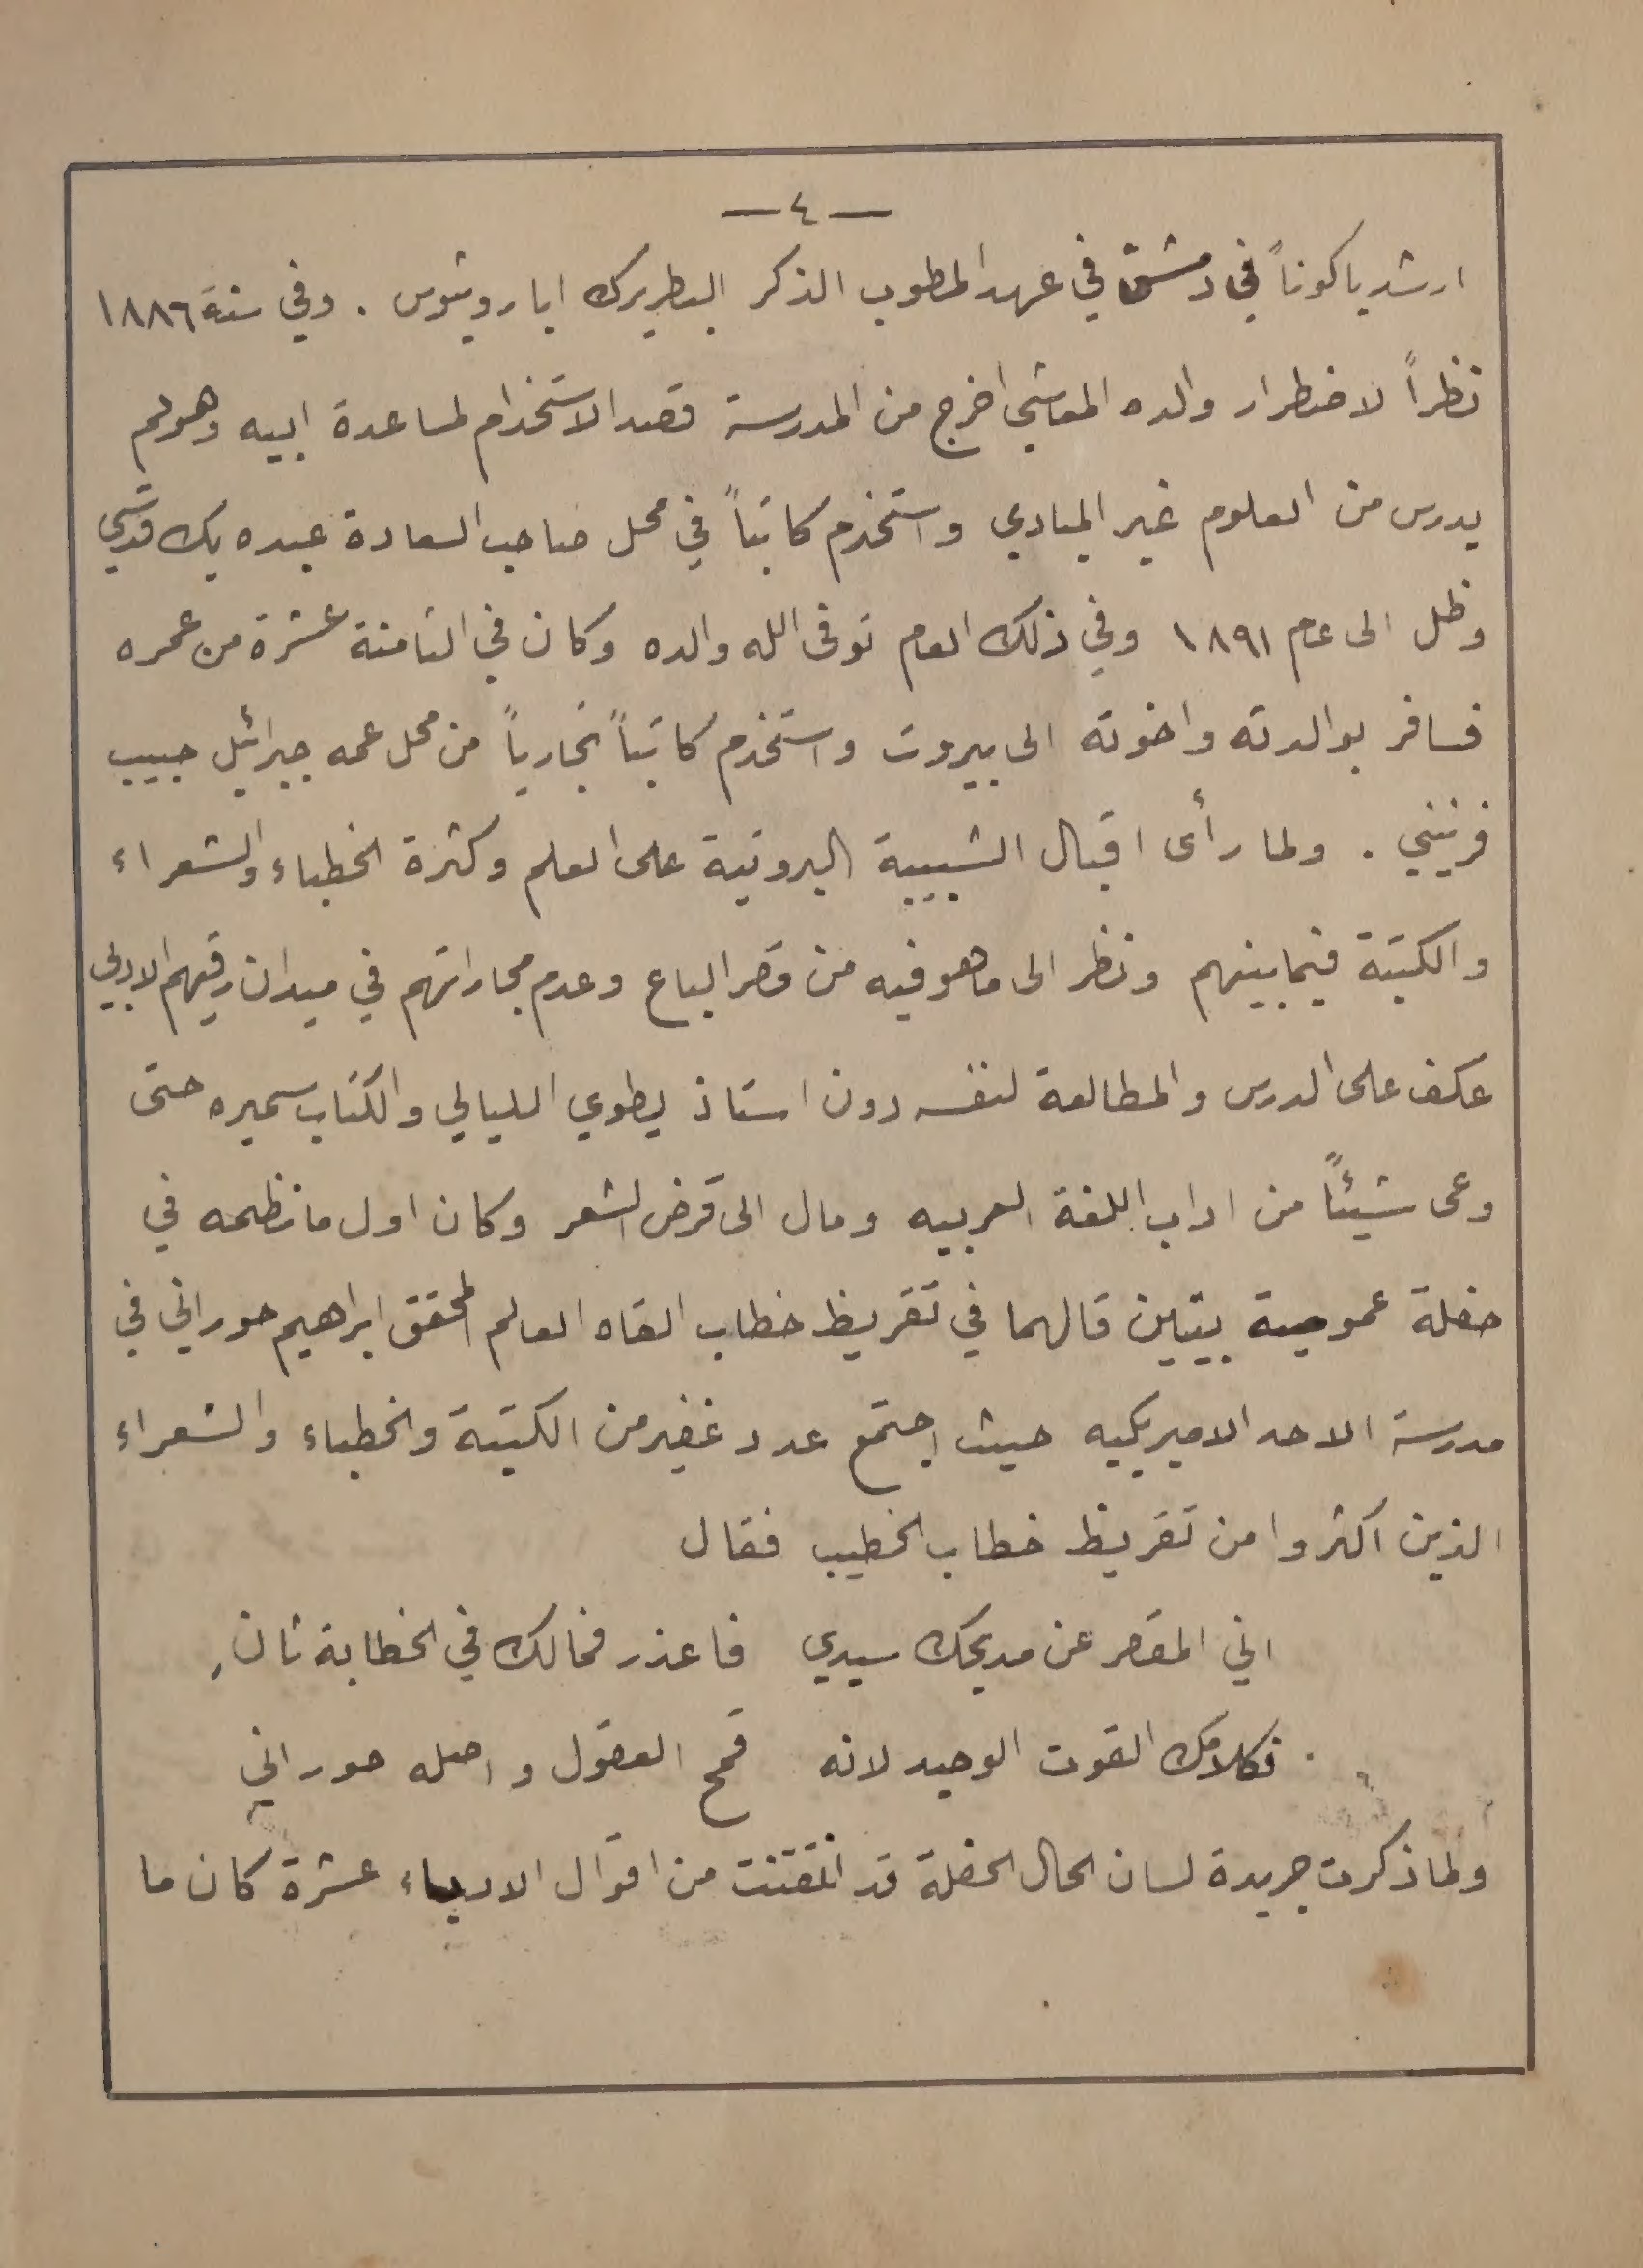 — ٤ —
ارشدياكوناً في دمشق في عهد المطوب الذكر البطريرك اياروثيوس . وفي سنة ١٨٨٦
نظراً لاضطرار والده المعاشي اخرج من المدرسة قصد الاستخدام لمساعدة ابيه وهو لم
يدرس من العلوم غير المبادي واستخدم كاتباً في محل صاحب السعادة عبده بك قدسي
وظل الى عام ١٨٩١ وفي ذلك العام توفى الله والده وكان في الثامنة عشرة من عمره
فسافر بوالدته واخوته الى بيروت واستخدم كاتباً تجارياً من محل عمه جبرائيل حبيب
فرنيني . ولما رأى اقبال الشبيبة البروتية على العلم وكثرة الخطباء والشعراء
والكتبة فيما بينهم ونظر الى ما هو فيه من قصر الباع وعدم مجاراتهم في ميدان رقيهم الادبي
عكف على الدرس والمطالعة لنفسه دون استاذ يطوي الليالي والكتاب سميره حتى
وعى شيئاً من اداب اللغة العربيه ومال الى قرض الشعر وكان اول ما نظمه في
حفلة عمومية بيتين قالهما في تقريظ خطاب القاه العالم المحقق ابراهيم حوراني في
مدرسة الاحد الاميريكيه حيث اجتمع عدد غفير من الكتبة والخطباء والشعراء
الذين اكثروا من تقريظ خطاب الخطيب فقال
اني المقصر عن مديحك سيدي فاعذر فمالك في الخطابة ثانِ
فكلامك القوت الوحيد لانه قمح العقول واصله حوراني
ولما ذكرت جريدة لسان الحال الحفلة قد انتقت من اقوال الادباء عشرة كان ما